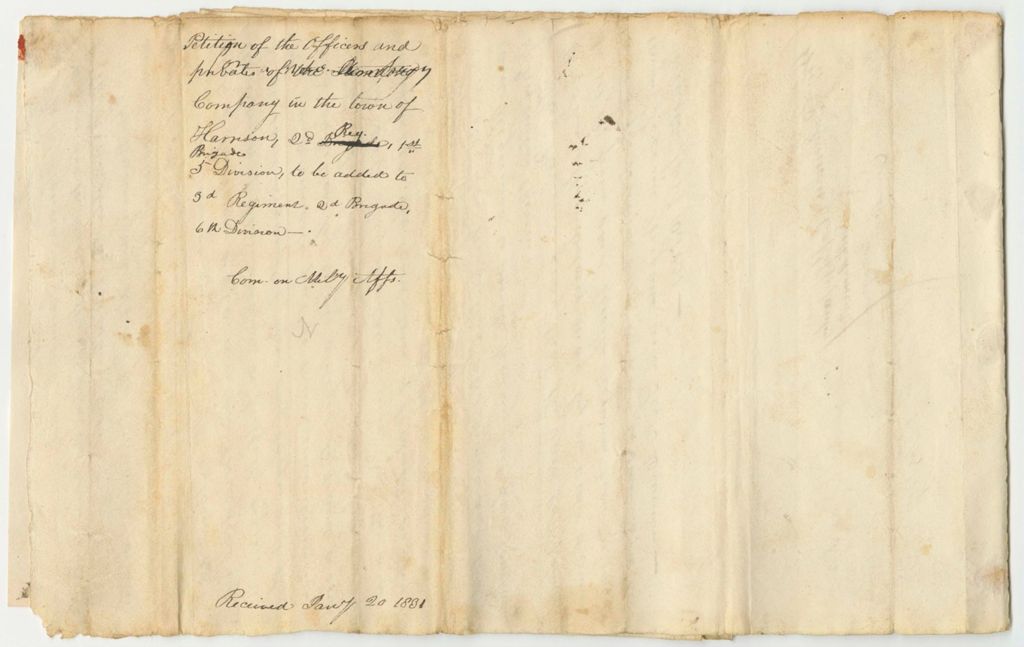 Petition of the Officers and
privates of the
Company in the town of
Harrison, 2d Reg. 1st
Brigade
5 Division, to be added to
3d Regiment. 2d Brigade,
6th Division —.
Com. on Mily Affs.
N
Received Jany 20 1831